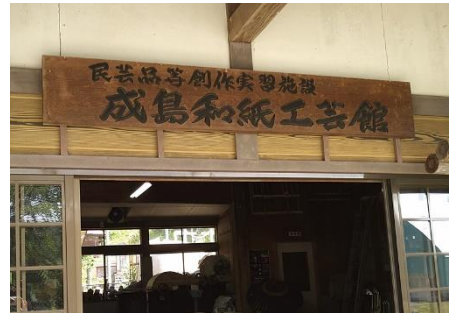 民芸品等創作実習施設
成島和紙工芸館